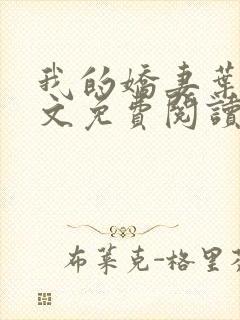 我的嬌妻葉
文免費閱讀
布萊克-格里芬